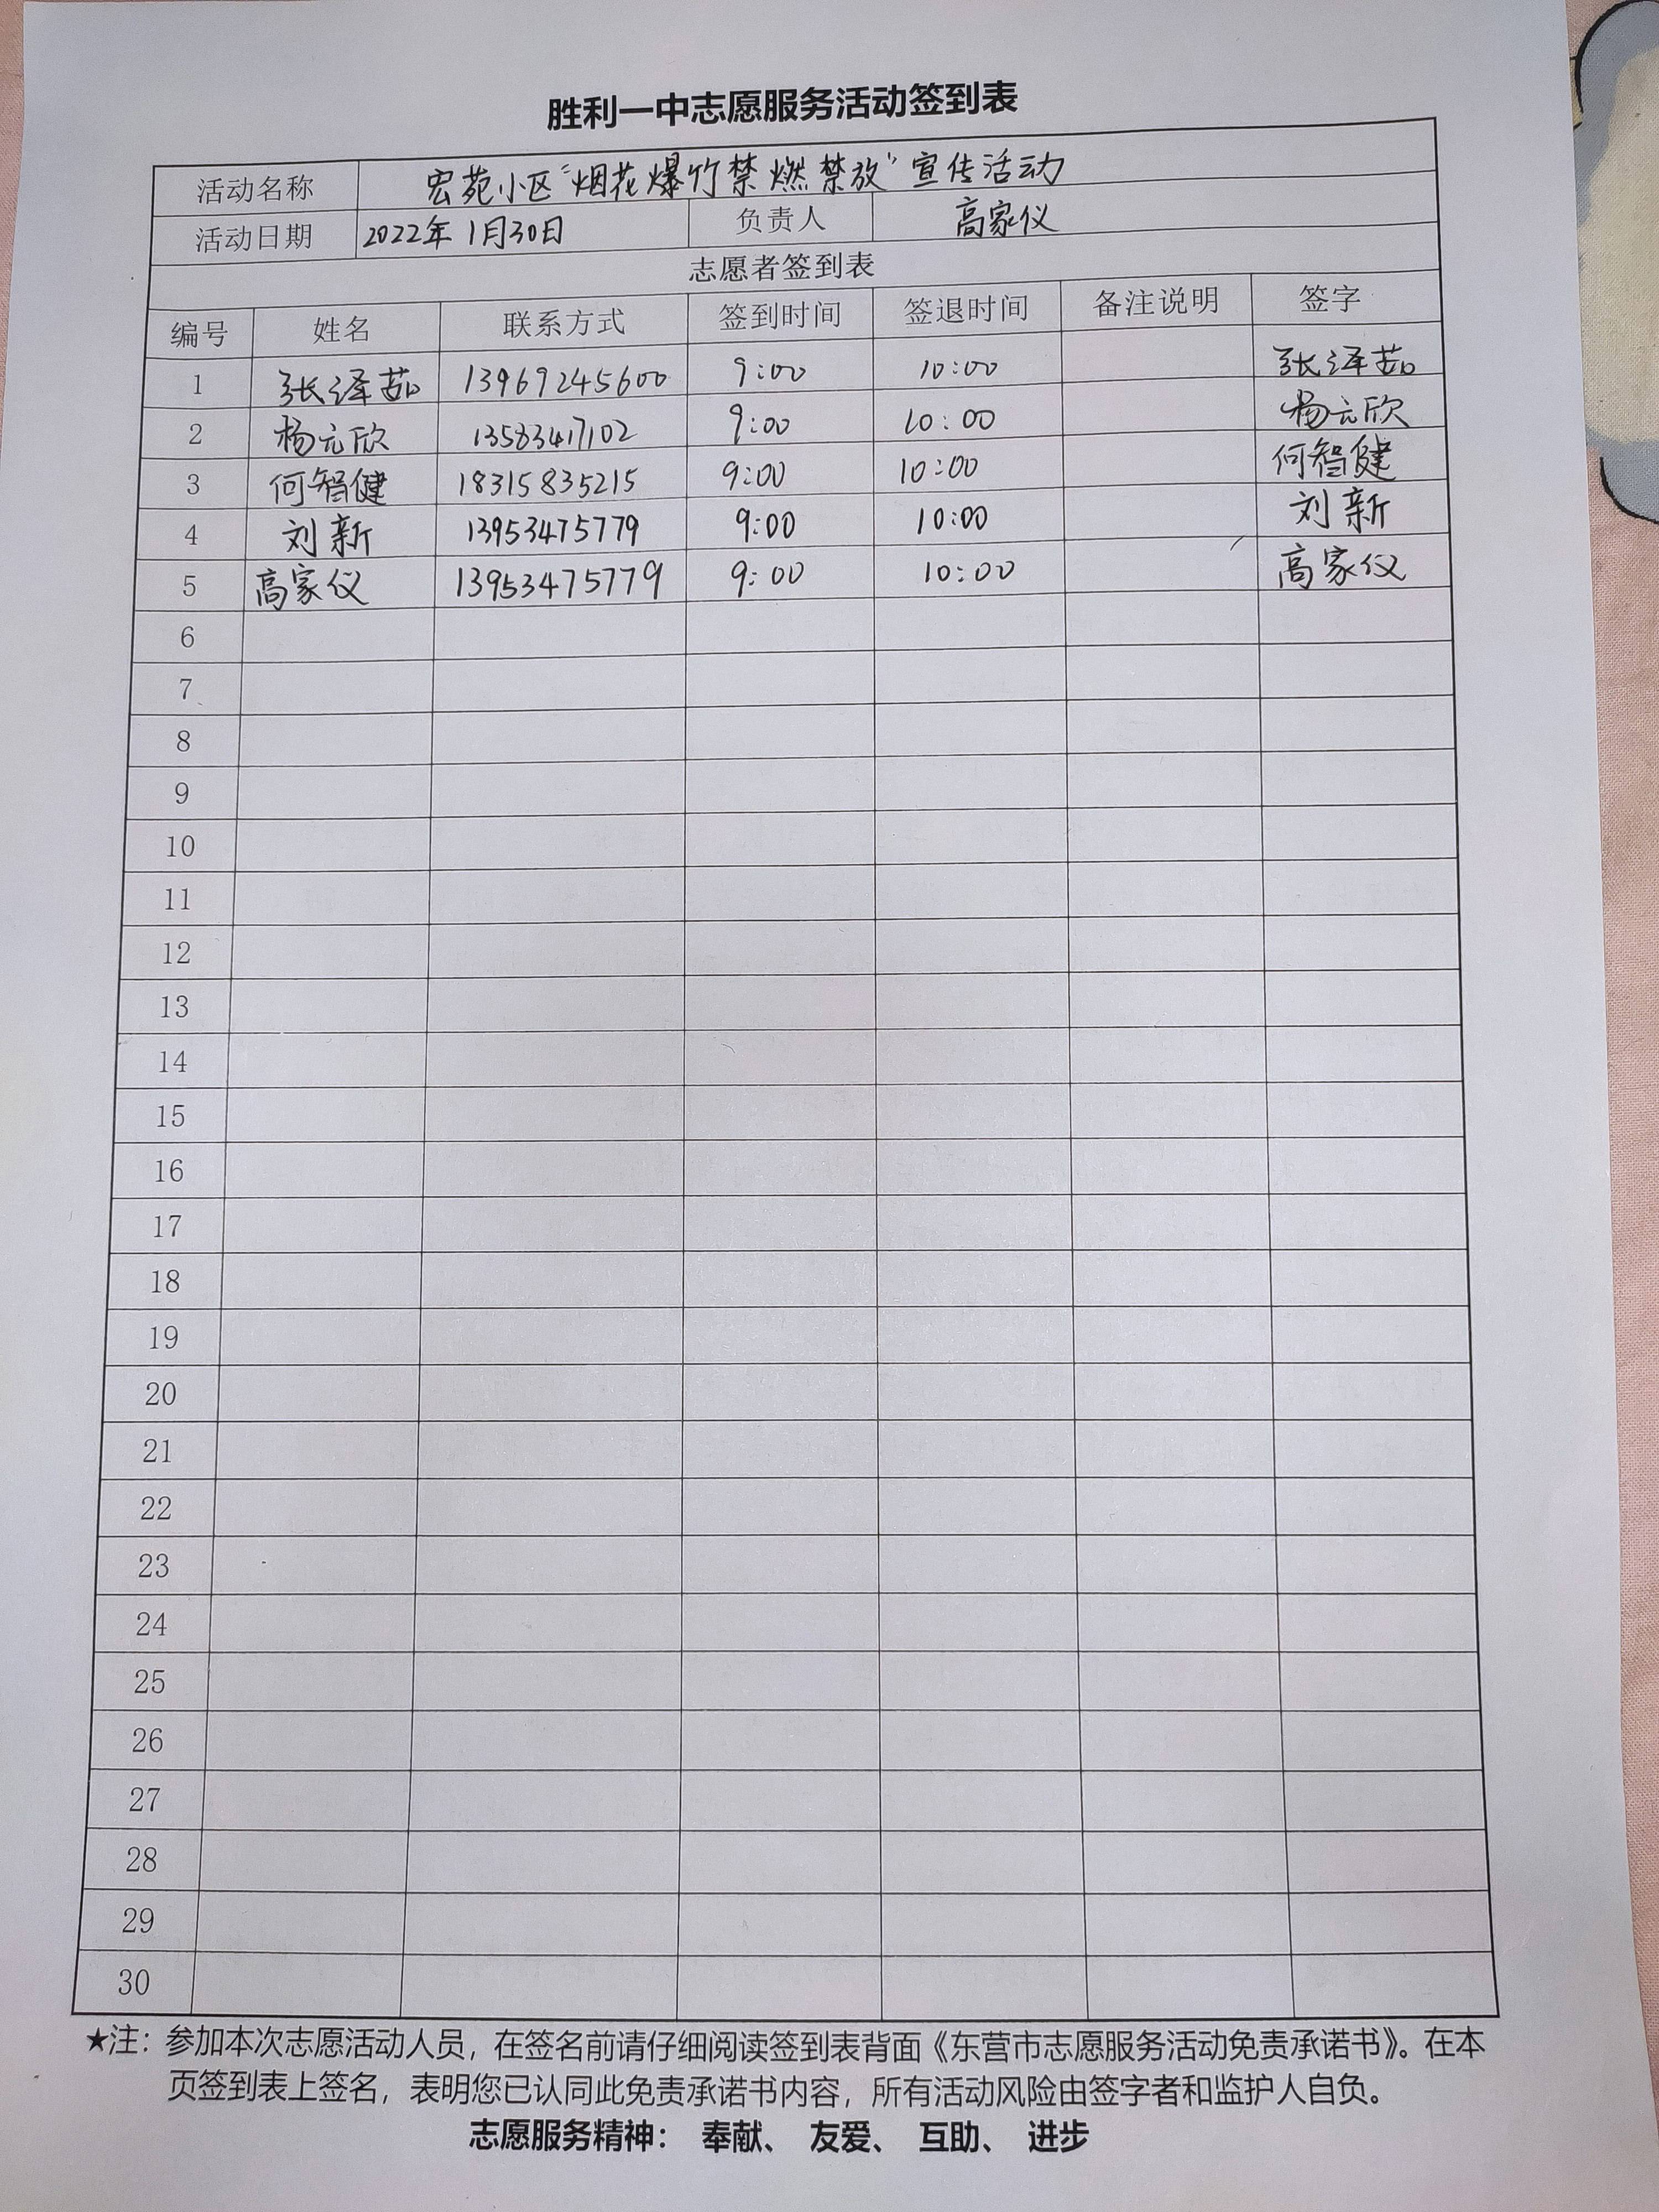 胜利一中志愿服务活动签到表
活动名称 宏苑小区“烟花爆竹禁燃禁放”宣传活动
活动日期 2022年1月30日 负责人 高家仪
志愿者签到表
编号 姓名 联系方式 签到时间 签退时间 备注说明 签字
1 张泽茹 13969245600 9:00 10:00 张泽茹
2 杨元欣 13583417102 9:00 10:00 杨元欣
3 何智健 18315835215 9:00 10:00 何智健
4 刘新 13953475779 9:00 10:00 刘新
5 高家仪 13953475779 9:00 10:00 高家仪
6
7
8
9
10
11
12
13
14
15
16
17
18
19
20
21
22
23
24
25
26
27
28
29
30
★注：参加本次志愿活动人员，在签名前请仔细阅读签到表背面《东营市志愿服务活动免责承诺书》。在本
页签到表上签名，表明您已认同此免责承诺书内容，所有活动风险由签字者和监护人自负。
志愿服务精神： 奉献、 友爱、 互助、 进步